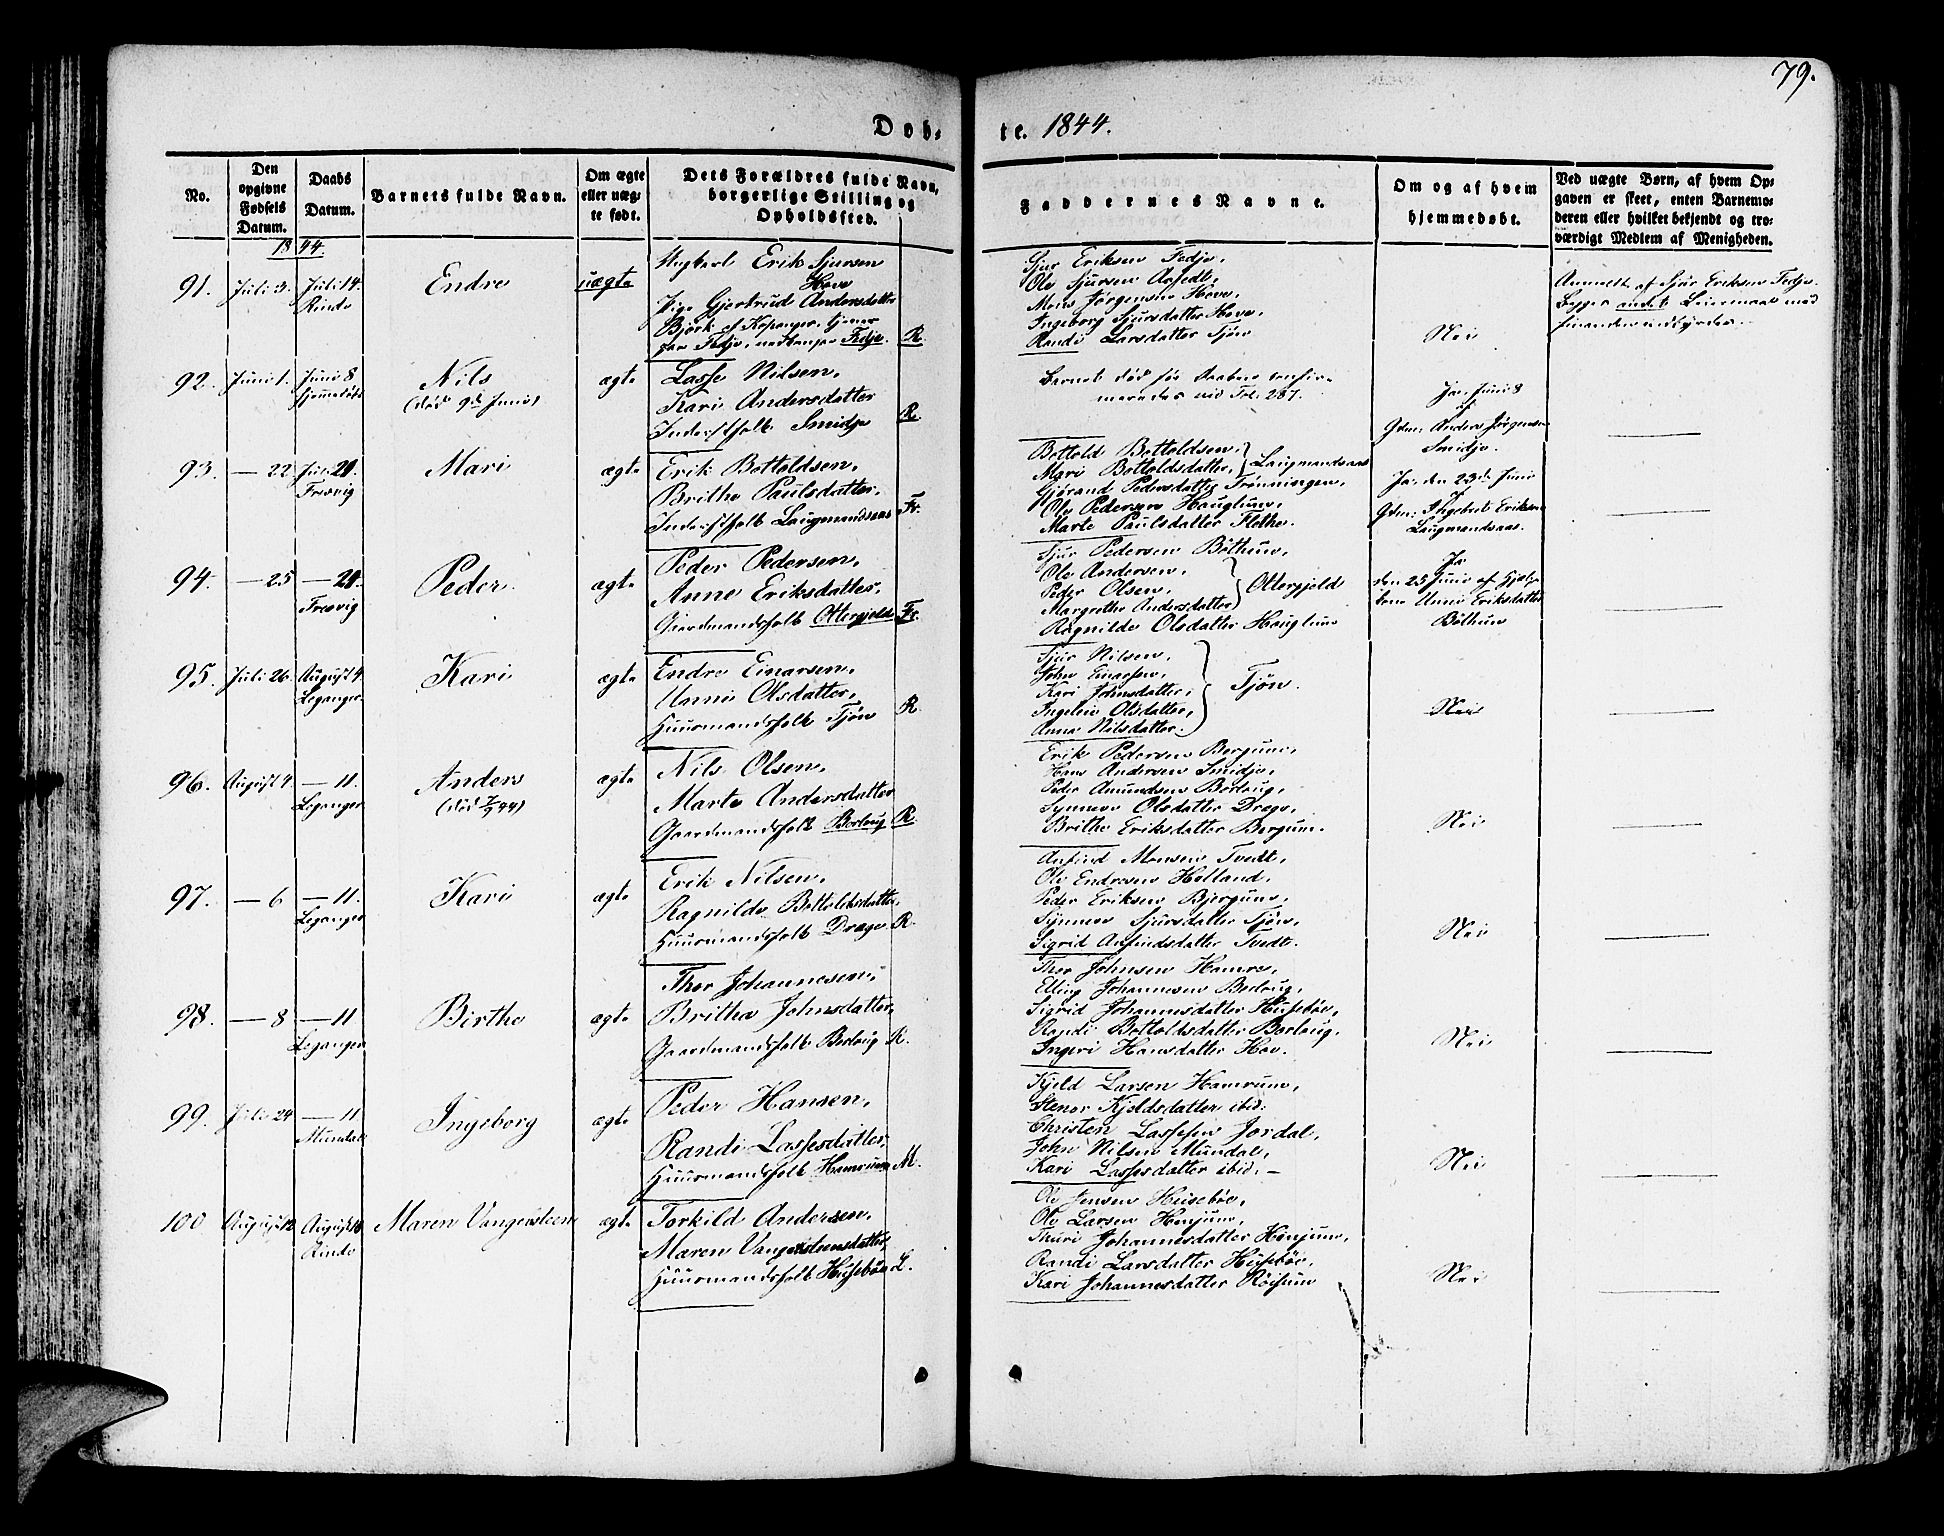 79.
Døb-
te. 1844.
No.
Den opgivne Fødsels Datum.
Daabs Datum.
Barnets fulde Navn.
Om ægte eller uægte født.
Dets Forældres fulde Navn, borgerlige Stilling og Opholdssted.
Faddernes Navne.
Om og af hvem hjemmedøbt.
Ved uægte Børn, af hvem Opgaven er skeet, enten Barnemoderen eller hvilket bekjendt og troværdigt Medlem af Menigheden.
1844.
91. Juli 3. Juli 14. Rinde
Endre
uægte
Ungkarl Erik Sjursen
Hove
Pige Gjertrud Andersdatter
Bjørk af Kopanger, tjener
Fedje. R.
Sjur Eriksen Fedje,
Ole Sjursen
Mons Jørgensen Hove,
Ingeborg Sjursdatter Hove,
Randi Larsdatter Tjøn
Nei
Anmeldt af Sjur Eriksen Fedje.
Begges andet Leiermaal med
hinanden indbyrdes.
92. Juni 1. Juni 8 Hjemmedøbt
Nils
(død 9de Juni)
ægte
Lasse Nilsen,
Kari Andersdatter
Inderstfolk Smidje R.
Barnet død før Daaben confir-
meredes vid Fol. 287.
Ja, Juni 8
af
Gdm. Anders Jørgensen
Smidje.
93. — 22. Juli 21. Fresvig
Mari
ægte
Erik Bottoldsen,
Brithe Paulsdatter,
Inderstfolk Laugmandsaas Fr.
Bottold Bottoldsen,
Mari Bottoldsdatter, } Laugmandsaas
Gjørand Pedersdatter Trønningen,
Ole Pedersen Hauglum,
Marte Paulsdatter Flethe.
Ja, den 23de Juni
af
Gdm. Ingebret Eriksen
Laugmandsaas.
94. — 25 — 21. Fresvig
Peder.
ægte
Peder Pedersen,
Anne Eriksdatter,
Gaardmandsfolk Ottergjeld Fr.
Sjur Pedersen Bøthun,
Ole Andersen,
Peder Olsen, } Ottergjeld
Margrethe Andersdatter
Ragnilde Olsdatter Hauglum
Ja
den 25 Juni af
Unni Eriksdatter
Bøthun
95. Juli 26. August 4. Leganger
Kari
ægte
Endre Einarsen,
Unni Olsdatter,
Huusmandsfolk Tjøn R.
Sjur Nilsen,
John Einarsen,
Kari Johnsdatter, } Tjøn.
Ingelev Olsdatter,
Anna Nilsdatter.
Nei
96. August 4 — 11. Leganger
Anders
ægte
Nils Olsen,
Marte Andersdatter
Gaardmandsfolk Borlaug R.
Erik Pedersen Bergum,
Hans Andersen Smidje,
Peder Amundsen Borlaug,
Synneve Olsdatter Drage,
Brithe Eriksdatter Bergum.
Nei
97. — 6 — 11. Leganger
Kari
ægte
Erik Nilsen,
Ragnilde Bottoldsdatter,
Huusmandsfolk Drage R.
Anfind Monsen Tvedt,
Ole Endresen Hølland,
Peder Eriksen Bjergum,
Synneve Sjursdatter Tjøn,
Sigrid Anfindsdatter Tvedt.
Nei
98. — 8 — 11 Leganger
Birthe
ægte
Thor Johannesen,
Britha Johnsdatter,
Gaardmandsfolk Borlaug R.
Thor Johnsen Hamre,
Elling Johannesen Borlaug,
Sigrid Johannesdatter Husebøe,
Randi Bottoldsdatter Borlaug,
Ingeri Hansdatter Hov.
Nei
99. Juli 24 — 11 Mundal
Ingeborg
ægte
Peder Hansen,
Randi Lassesdatter
Huusmandsfolk Hamrum M.
Kjeld Larsen Hamrum,
Stenor Kjeldsdatter ibid:
Christen Lassesen Jordal,
John Nilsen Mundal,
Kari Lassesdatter ibid. —
Nei
100 August 12 August 18 Rinde
Maren Vangensteen
ægte
Torkild Andersen,
Maren Vangensteensdatter,
Huusmandsfolk Husebøe L.
Ole Jensen Husebøe,
Ole Larsen Henjum,
Thuri Johannesdatter Henjum,
Randi Larsdatter Husebøe,
Kari Johannesdatter Røisum
Nei